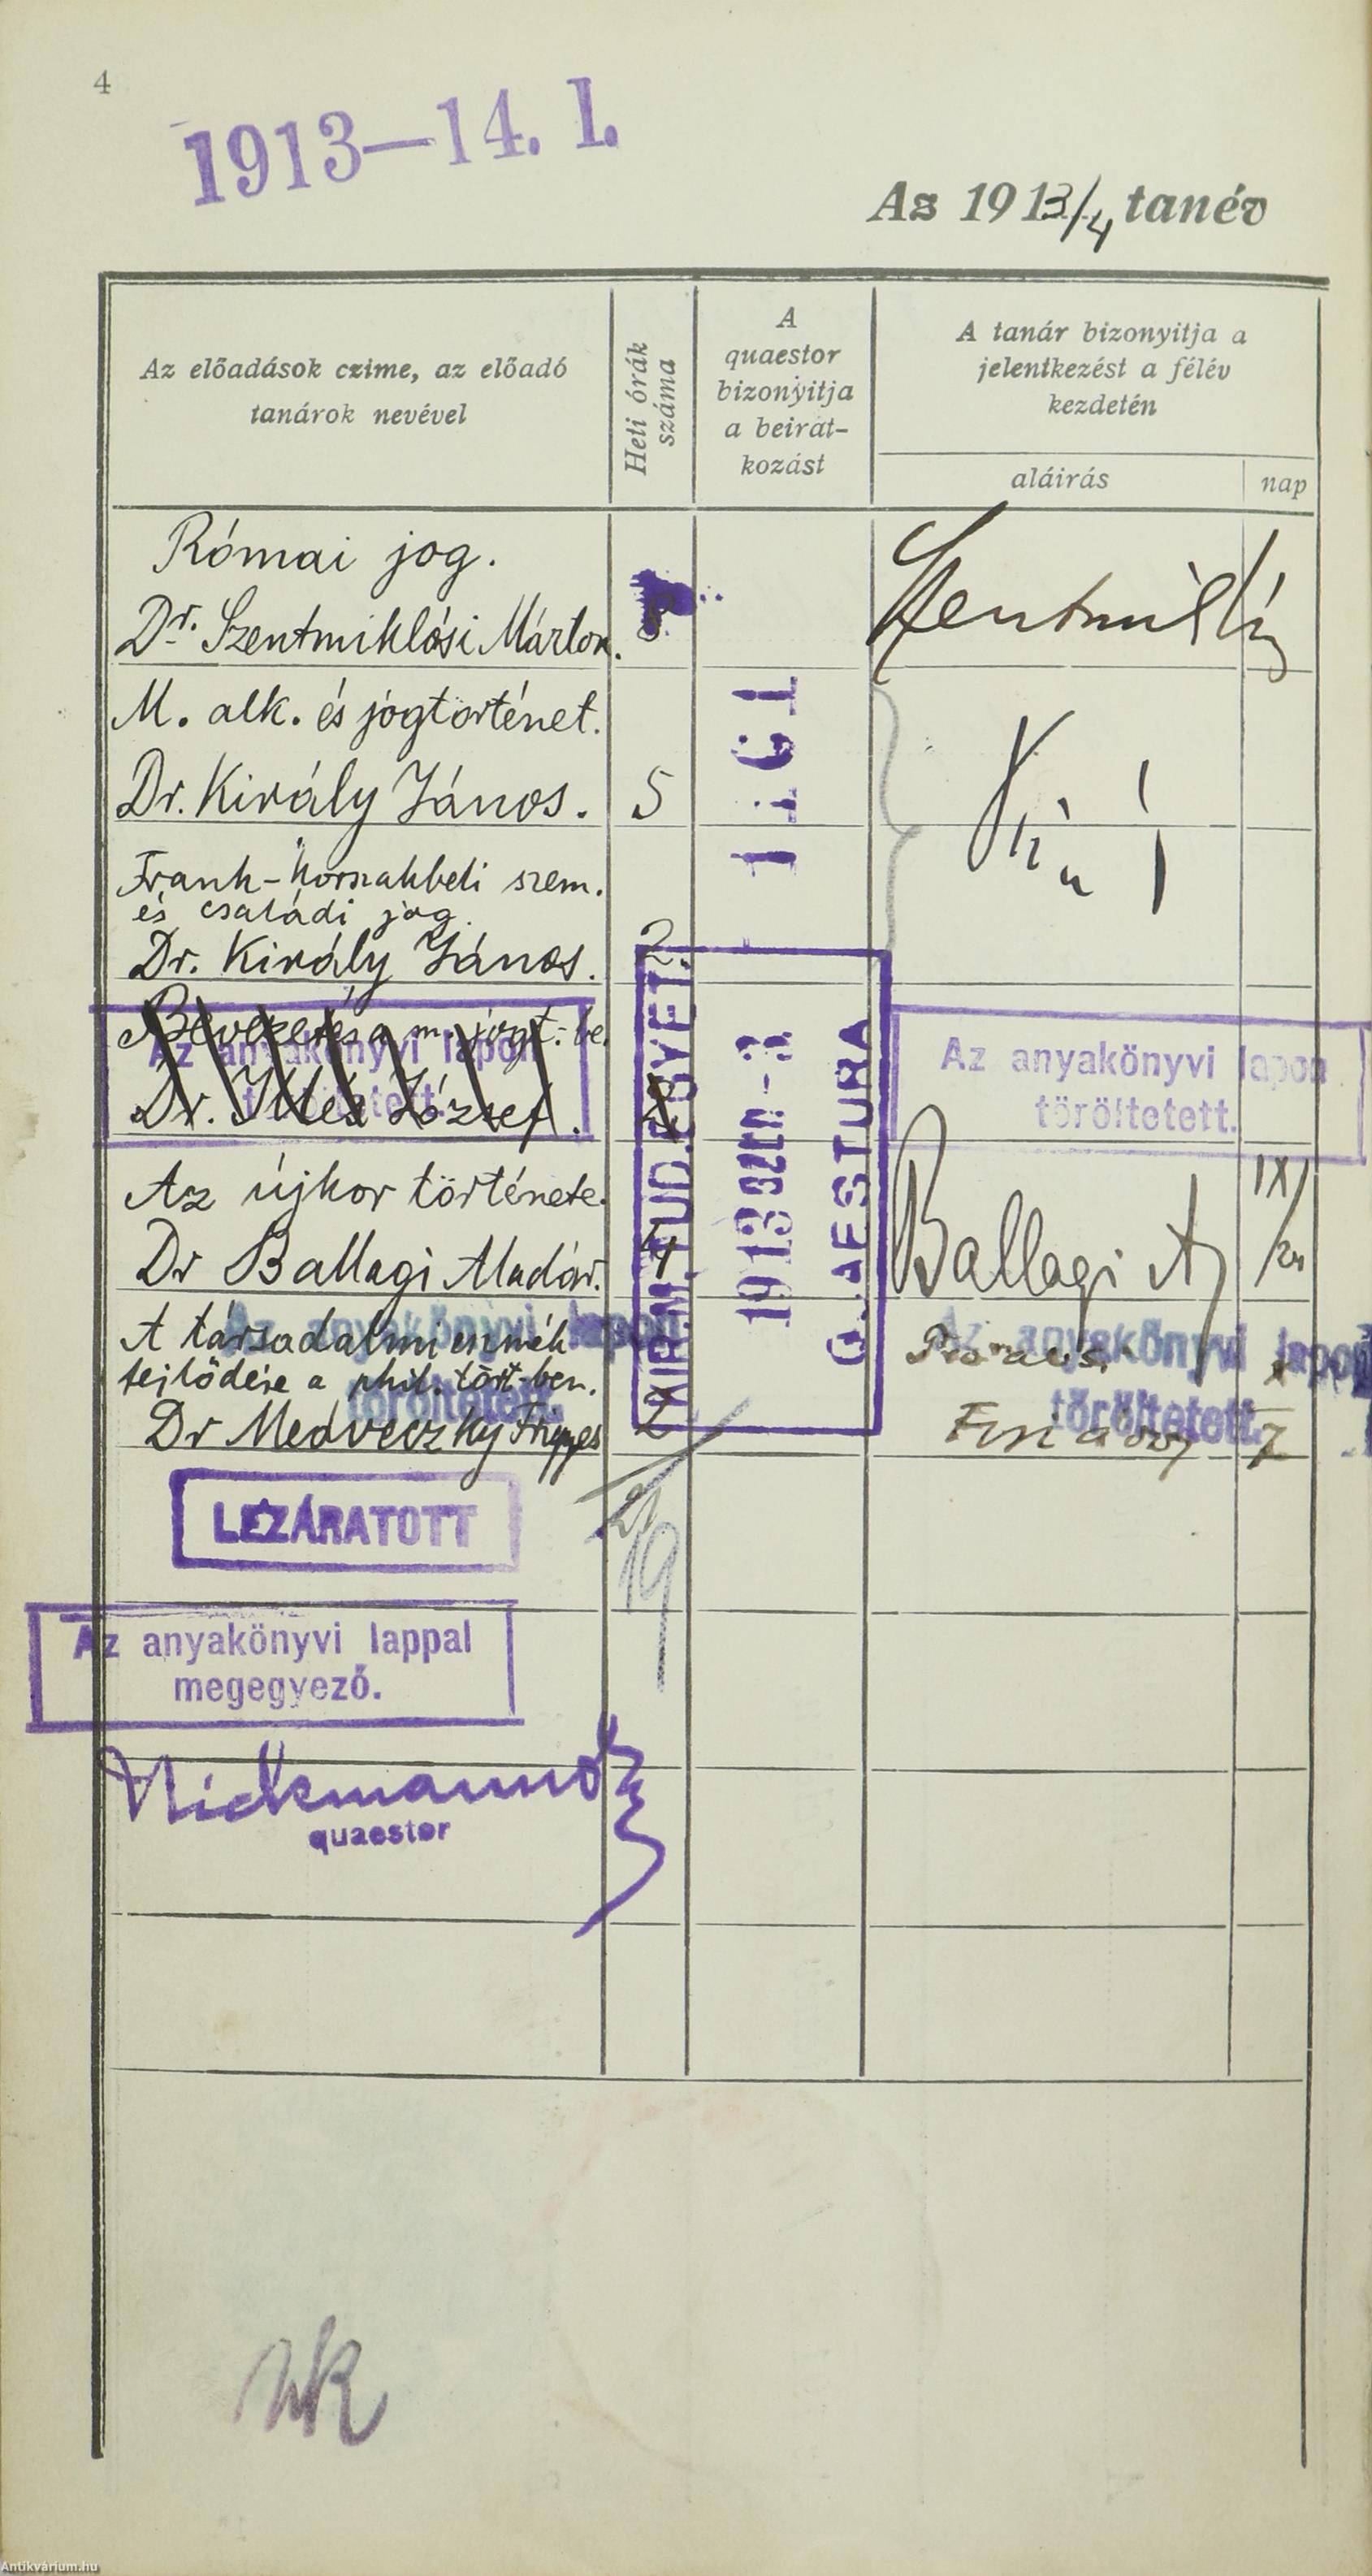 4
1913—14. I.
Az 1913/4 tanév
Az előadások czime, az előadó
tanárok nevével
Heti órák
száma
A
quaestor
bizonyitja
a beirat-
kozást
A tanár bizonyitja a
jelentkezést a félév
kezdetén
aláirás
nap
Római jog.
Dr. Szentmiklósi Márton.
8
M. alk. és jogtörténet.
Dr. Király János.
5
Frank-
szem.
és családi jog.
Dr. Király János.
2
Bevezetés a m. jogt.-be.
Dr. Illés József.
Az anyakönyvi lapon
töröltetett.
Az anyakönyvi lapon
töröltetett.
Az újkor története.
Dr Ballagi Aladár.
4
Ballagi A
IX/
A társadalmi eszmék
fejlődése a phil. tört-ben.
Dr Medveczky Frigyes
2
Az anyakönyvi lapon
töröltetett.
Az anyakönyvi lapon
töröltetett.
TUD. EGYET.
1913
QUAESTURA
21
19
LEZÁRATOTT
Az anyakönyvi lappal
megegyező.
quaestor
Antikvárium.hu